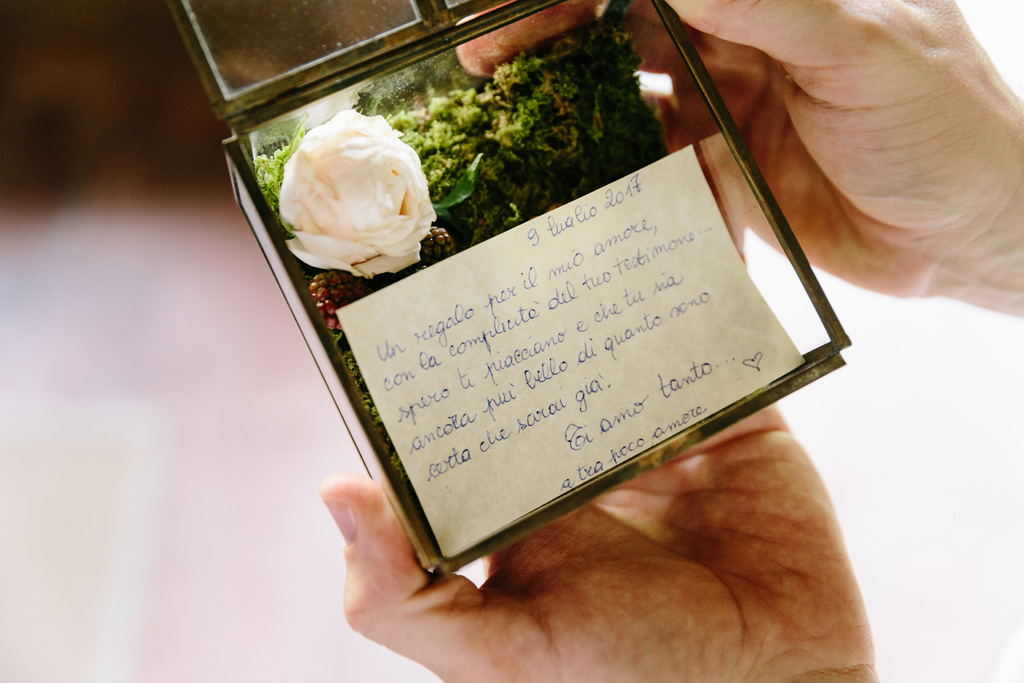 9 luglio 2017
Un regalo per il mio amore,
con la complicità del tuo testimone...
spero ti piacciano e che tu sia
ancora più bello di quanto sono
certa che sarai già.
Ti amo tanto... ♡
a tra poco amore